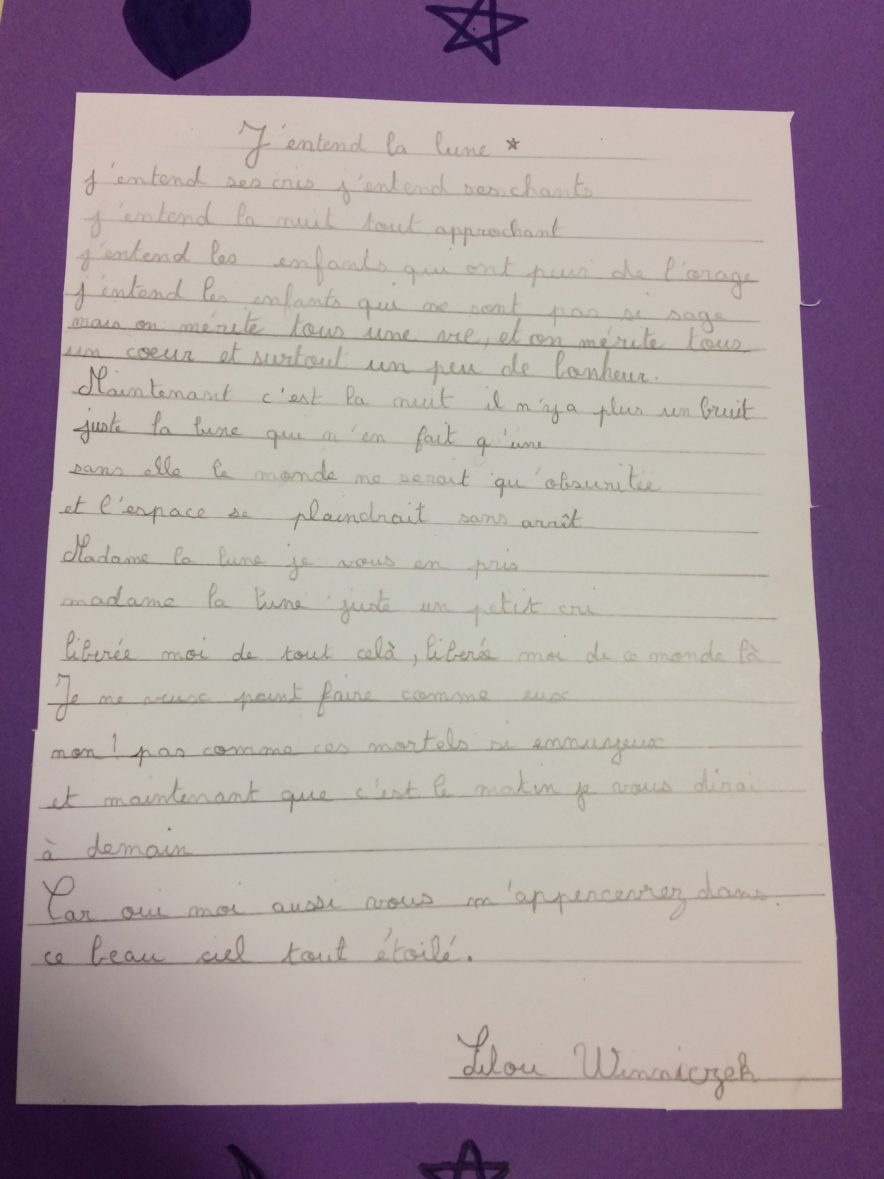 J'entend la lune *
j'entend ses cris j'entend ses chants
j'entend la nuit tout approchant
j'entend les enfants qui ont peur de l'orage
j'entend les enfants qui ne sont pas si sage
mais on mérite tous une vie, et on mérite tous
un coeur et surtout un peu de bonheur.
Maintenant c'est la nuit il n'y a plus un bruit
juste la lune qui n'en fait q'une
sans elle le monde ne serait qu'obsuritée
et l'espace se plaindrait sans arrêt
Madame la lune je vous en pris
madame la lune juste un petit cri
liberée moi de tout celà, liberée moi de ce monde là
Je ne veux point faire comme eux
non! pas comme ces mortels si ennuyeux
et maintenant que c'est le matin je vous dirai
à demain
Car oui moi aussi vous m'appercevrez dans
ce beau ciel tout étoilé.
Lilou Winniczek